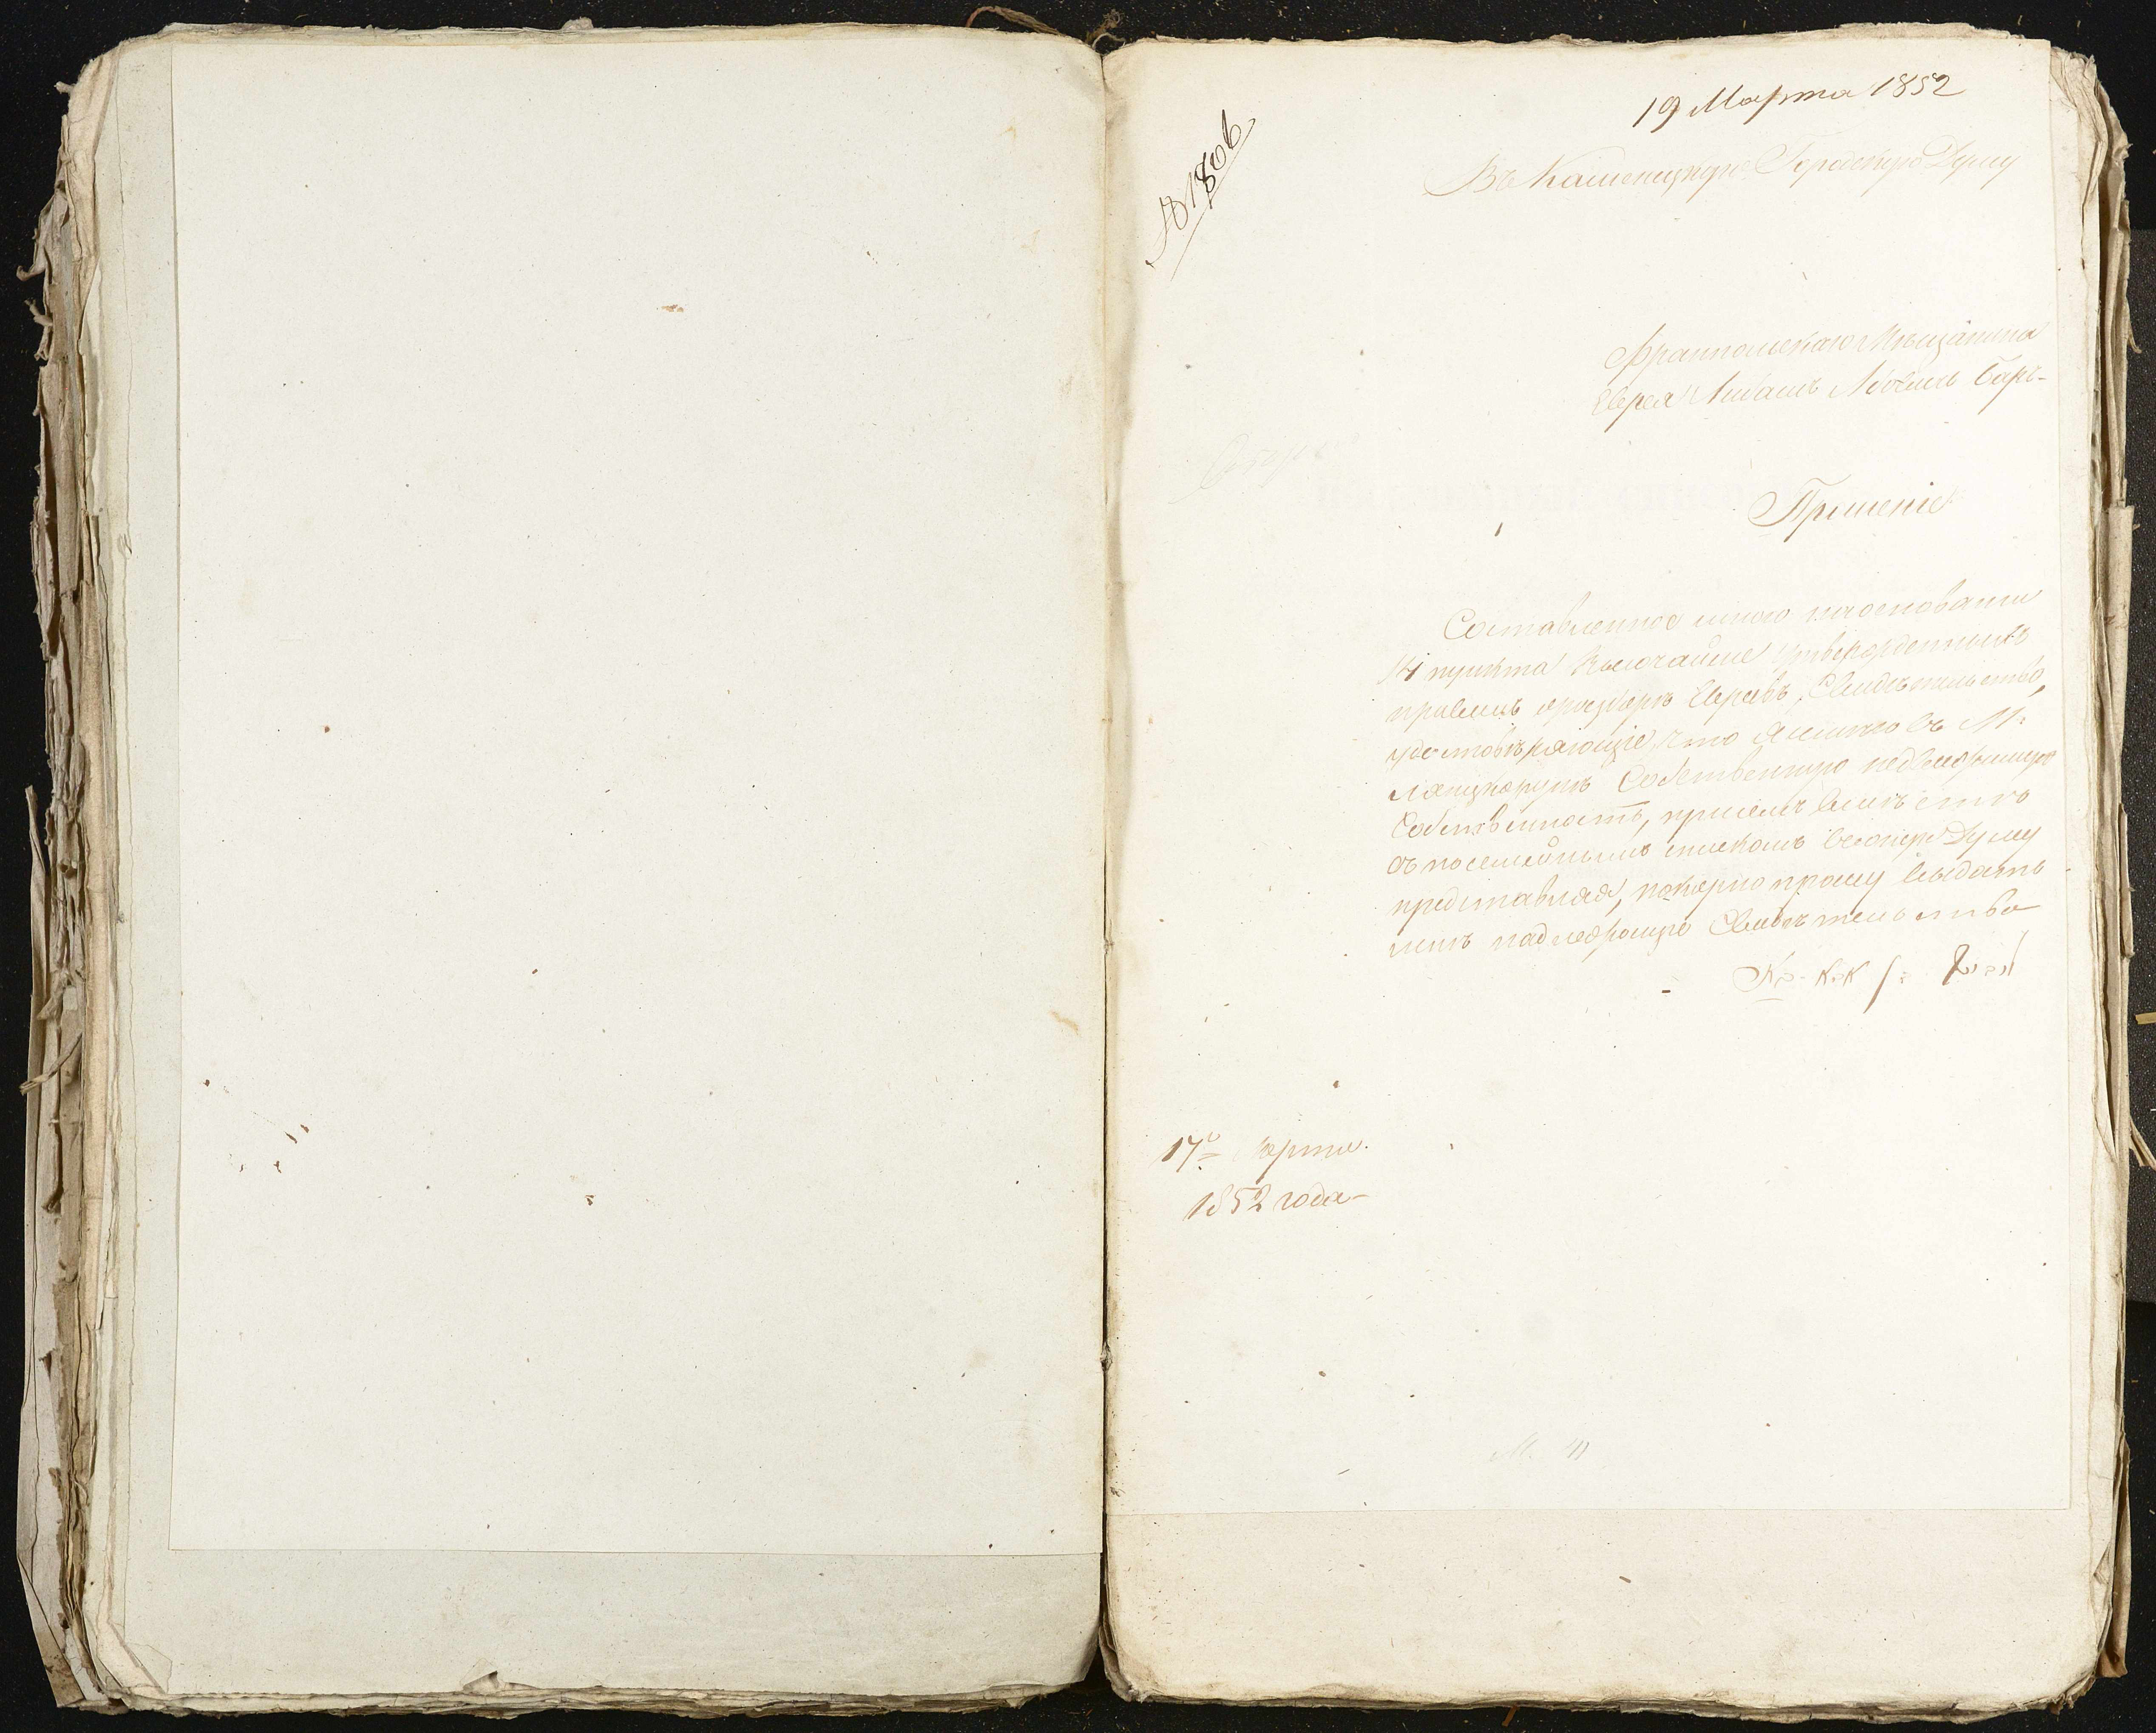 19 Марта 1852
№ 1806
Въ Каменецкую Городскую Думу
Франпольскаго Мѣщанина
Еврея Лейбовичъ
Прошеніе
Составленное мною на основаніи
14 пункта Высочайше утвержденныхъ
правилъ о разборѣ Евреевъ, Свидѣтельство,
удостовѣряющіе, что я имѣю въ М:
Лянцкорунѣ Собственную недвижимую
Собственность, при семъ вмѣстѣ
съ посемейнымъ спискомъ въ оную Думу
представляя, покорно прошу выдать
мнѣ надлежащіе Свидѣтельство
17го Марта
1852 года